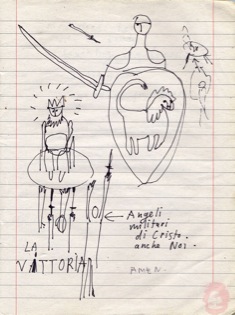 Angeli
militari
di Cristo.
anche Noi.
LA
VITTORIA
AMEN.